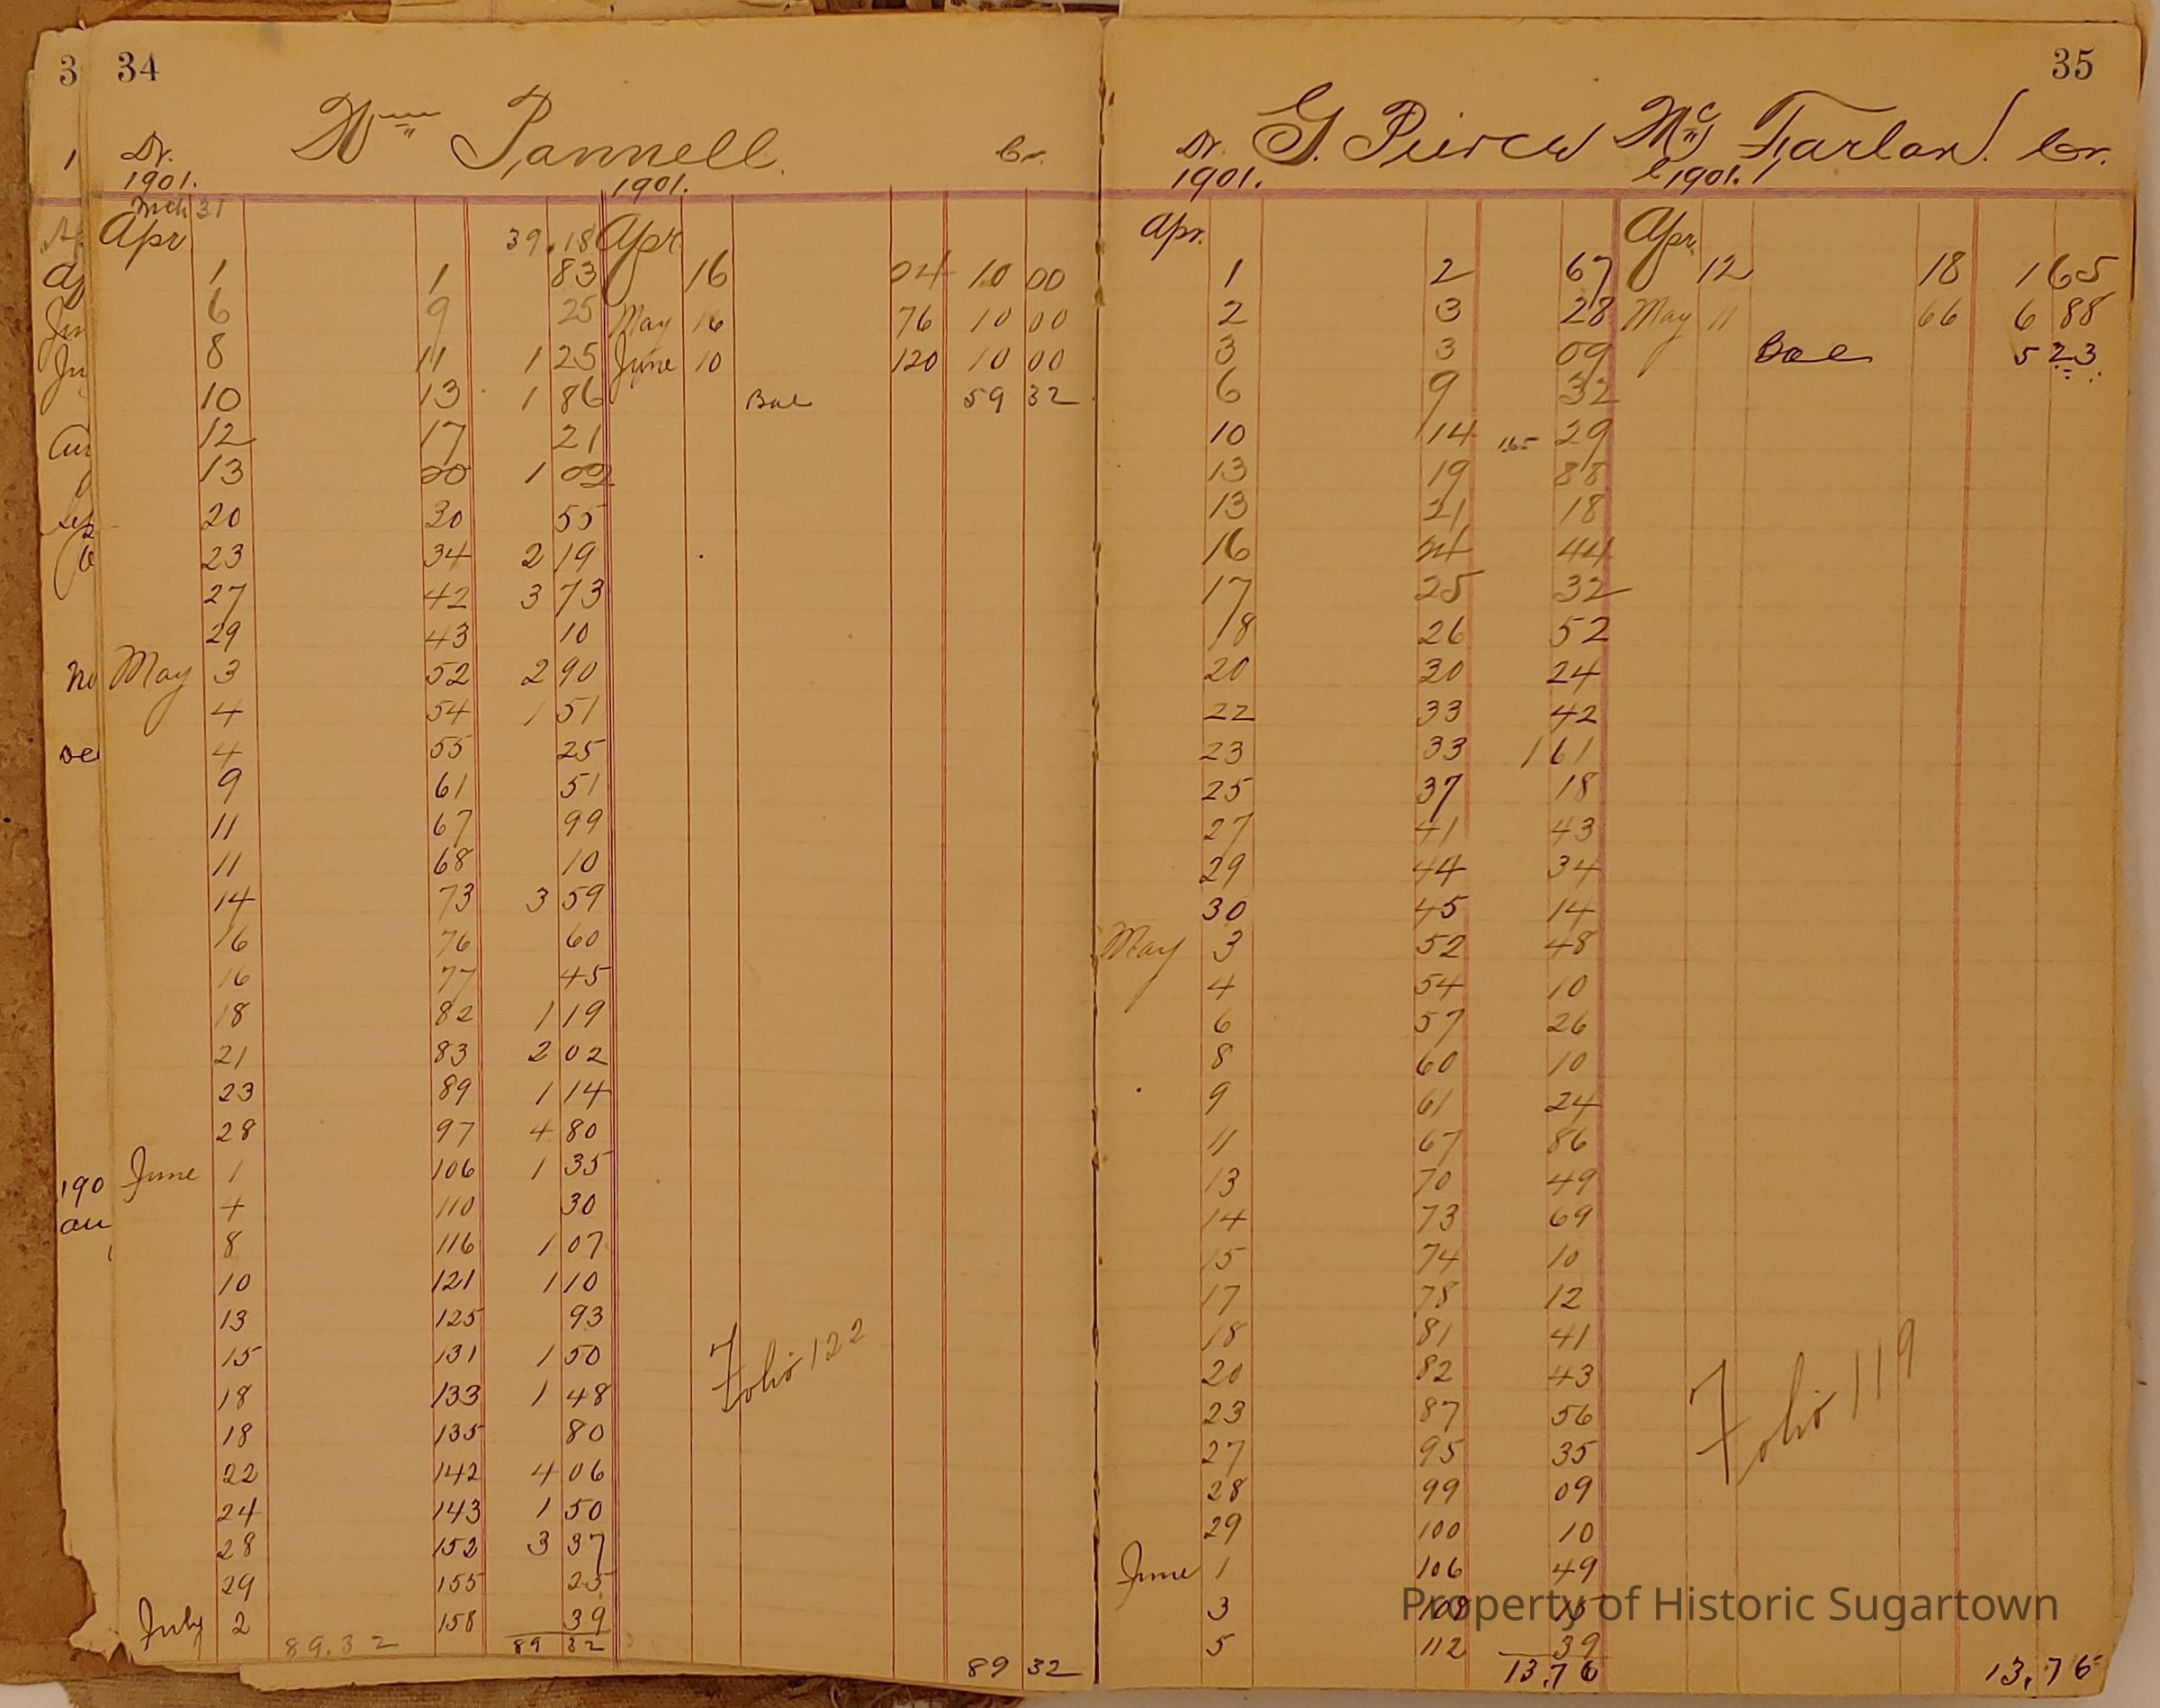 3 34
Wm Pannell.
1 Dr. Cr.
1901. 1901.
Mch 31
Apr 39.18 Apr
1 1 83 16 24 10 00
6 9 25 May 16 76 10 00
8 11 1 25 June 10 120 10 00
10 13 1 86 Bal 59 32
12 17 21
13 20 1 02
20 30 55
23 34 2 19
27 42 3 73
29 43 10
May 3 52 2 90
4 54 1 51
4 55 25
9 61 51
11 67 99
11 68 10
14 73 3 59
16 76 60
16 77 45
18 82 1 19
21 83 2 02
23 89 1 14
28 97 4 80
190 June 1 106 1 35
4 110 30
8 116 1 07
10 121 1 10
13 125 93
15 131 1 50
18 133 1 48
18 135 80
22 142 4 06
24 143 1 50
28 152 3 37
29 155 25
July 2 158 39
89.32 89 32
89 32
Folio 122
35
Dr. G. Pierce McFarland. Cr.
1901. 1901.
Apr. Apr.
1 2 67 12 18 1 65
2 3 28 May 11 66 6 88
3 3 09 Bal 5 23
6 9 32
10 14 1.65 29
13 19 88
13 21 18
16 24 44
17 25 32
18 26 52
20 30 24
22 33 42
23 33 1 61
25 37 18
27 41 43
29 44 34
30 45 14
May 3 52 48
4 54 10
6 57 26
8 60 10
9 61 24
11 67 86
13 70 49
14 73 69
15 74 10
17 78 12
18 81 41
20 82 43
23 87 56
27 95 35
28 99 09
29 100 10
June 1 106 49
3 108 15
5 112 39
13.76 13.76
Folio 119
Property of Historic Sugartown